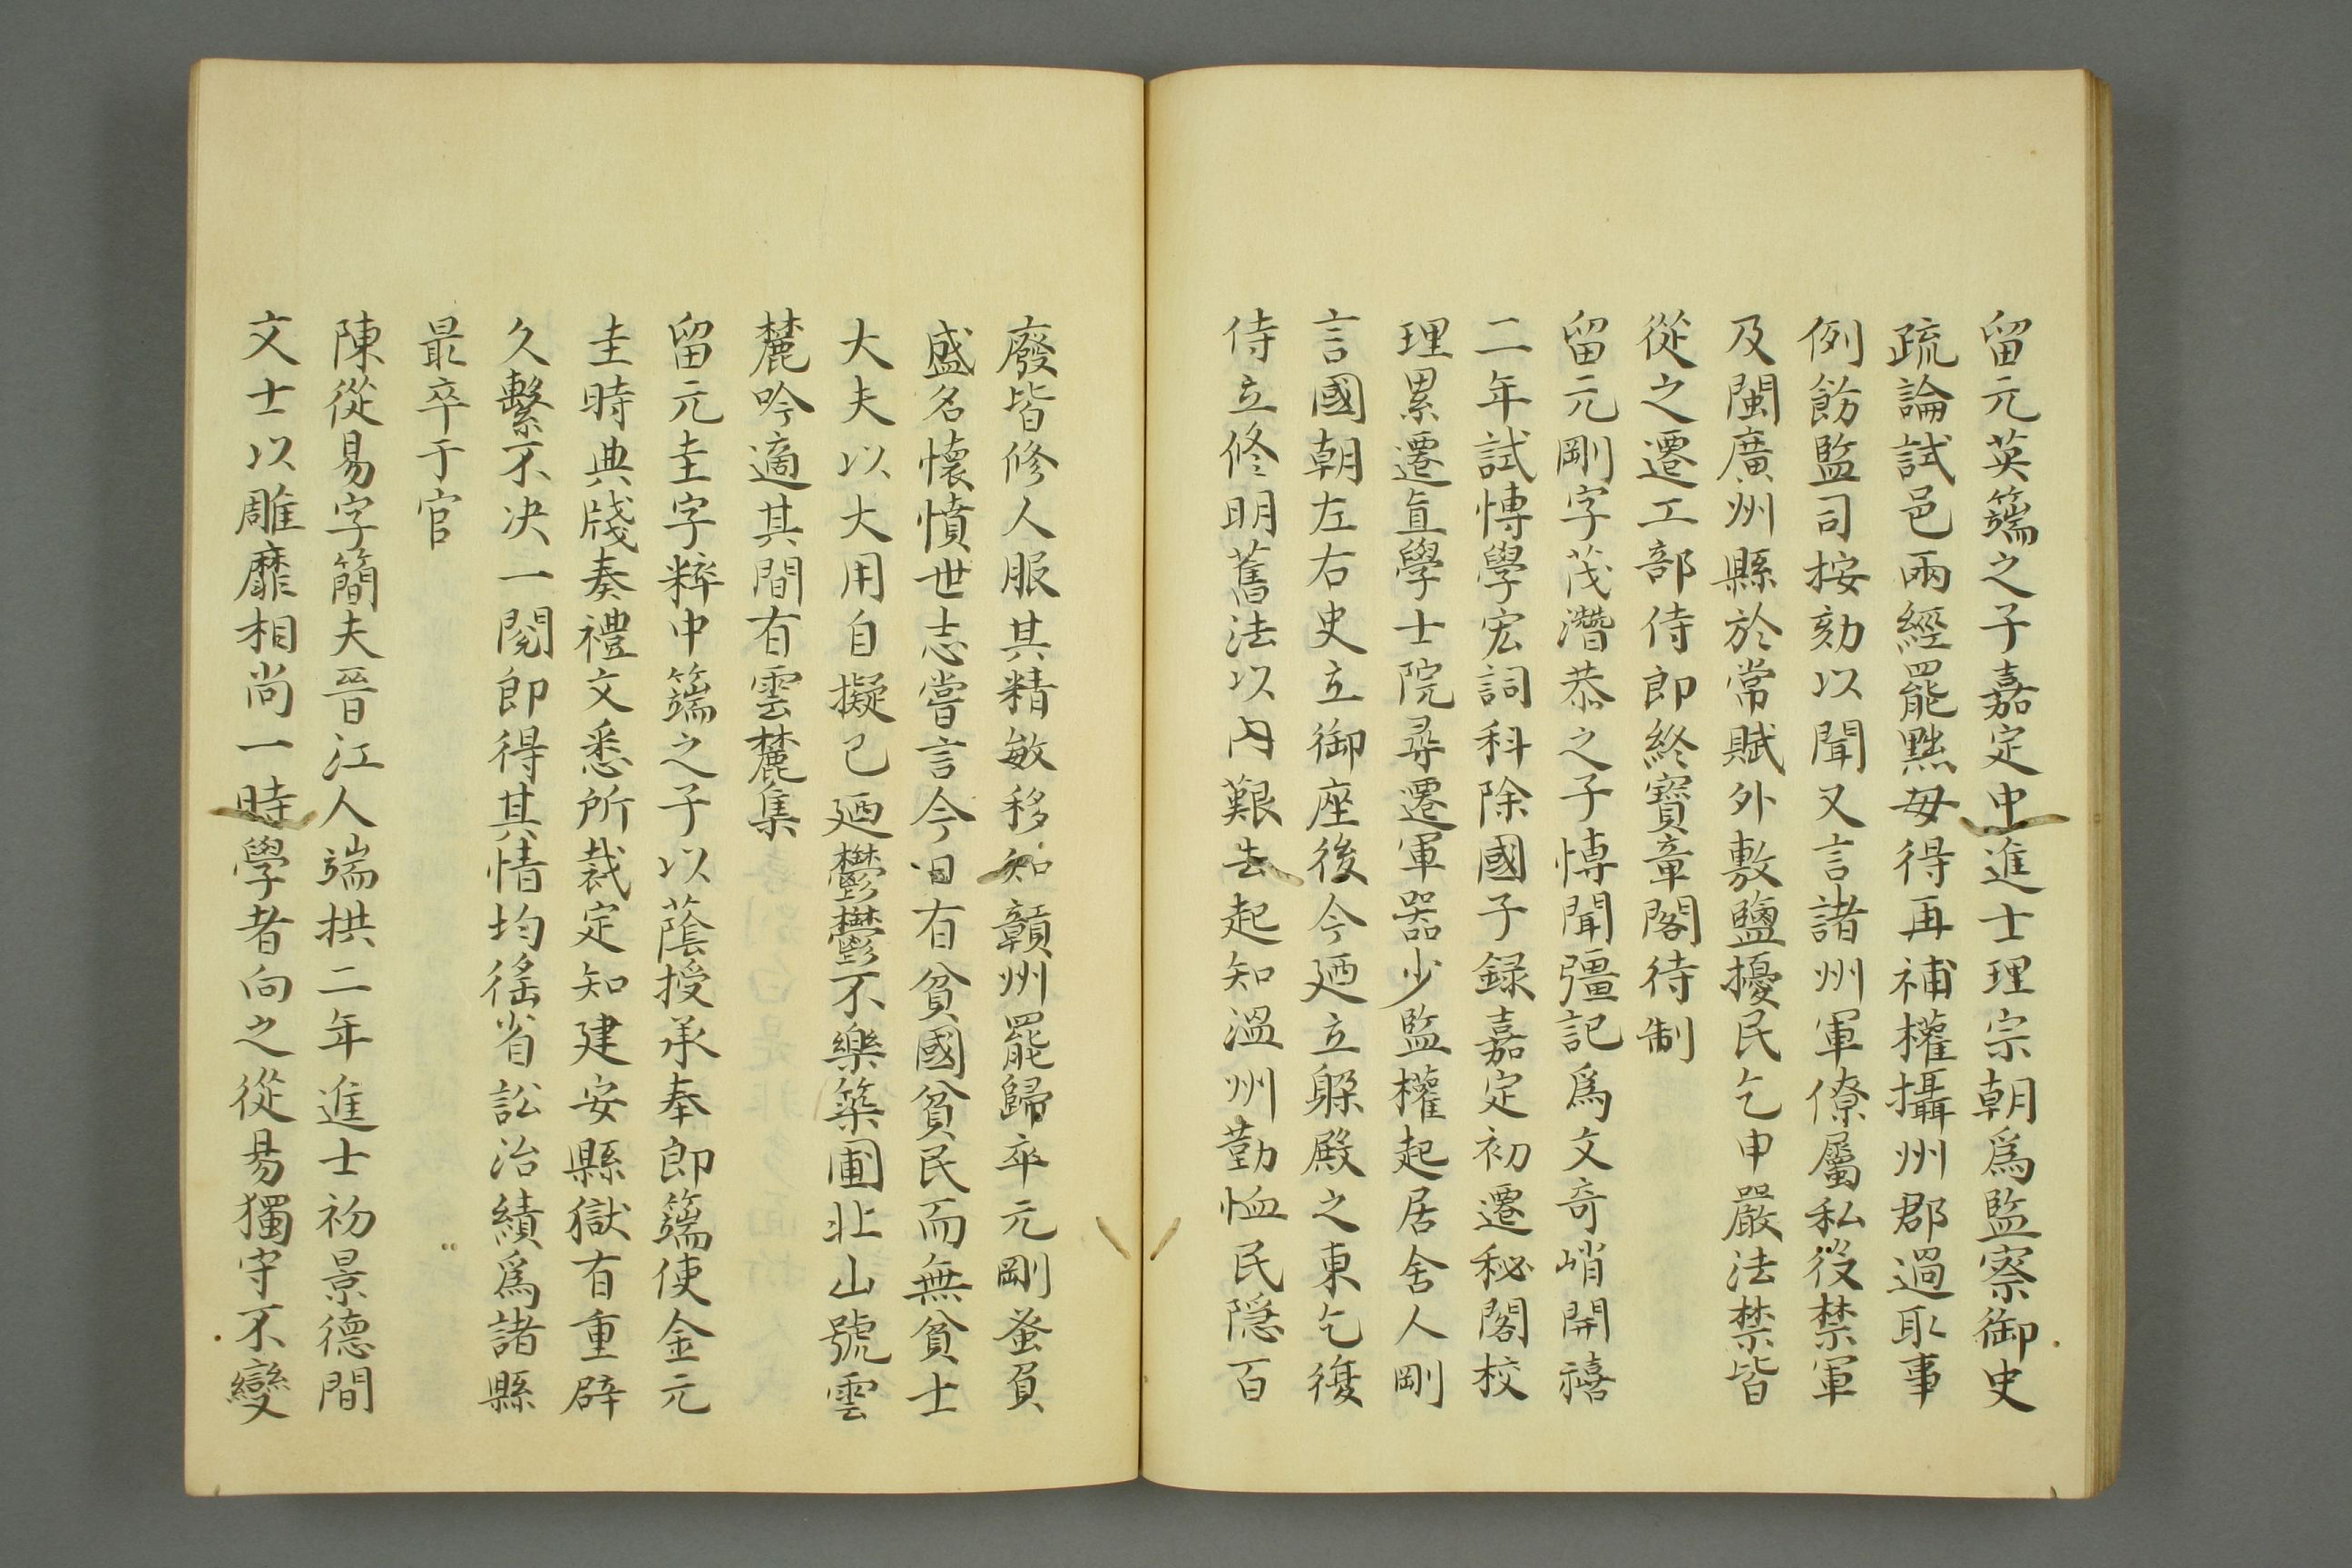 留元英籥之子嘉定中進士理宗朝爲監察御史
疏論試邑兩經罷黜毋得再補權攝州郡遏取事
例飭監司按劾以聞又言諸州軍僚屬私役禁軍
及閩廣州縣於常賦外敷鹽擾民乞申嚴法禁皆
從之遷工部侍郎終寶章閣待制
留元剛字茂潛恭之子博聞彊記爲文奇峭開禧
二年試博學宏詞科除國子録嘉定初遷秘閣校
理累遷直學士院尋遷軍器少監權起居舍人剛
言國朝左右史立御座後今廼立朶殿之東乞復
侍立修明舊法以内艱去起知溫州勤恤民隠百
廢皆修人服其精敏移知贛州罷歸卒元剛蚤負
盛名懷憤世志嘗言今日有貧國貧民而無貧士
大夫以大用自擬已廼鬱鬱不樂築圃北山號雲
麓吟適其間有雲麓集
留元圭字粹中籥之子以蔭授承奉郎籥使金元
圭時典牋奏禮文悉所裁定知建安縣獄有重辟
久繫不决一閲即得其情均徭省訟治績爲諸縣
最卒于官
陳從易字簡夫晉江人端拱二年進士初景德間
文士以雕靡相尚一時學者向之從易獨守不變